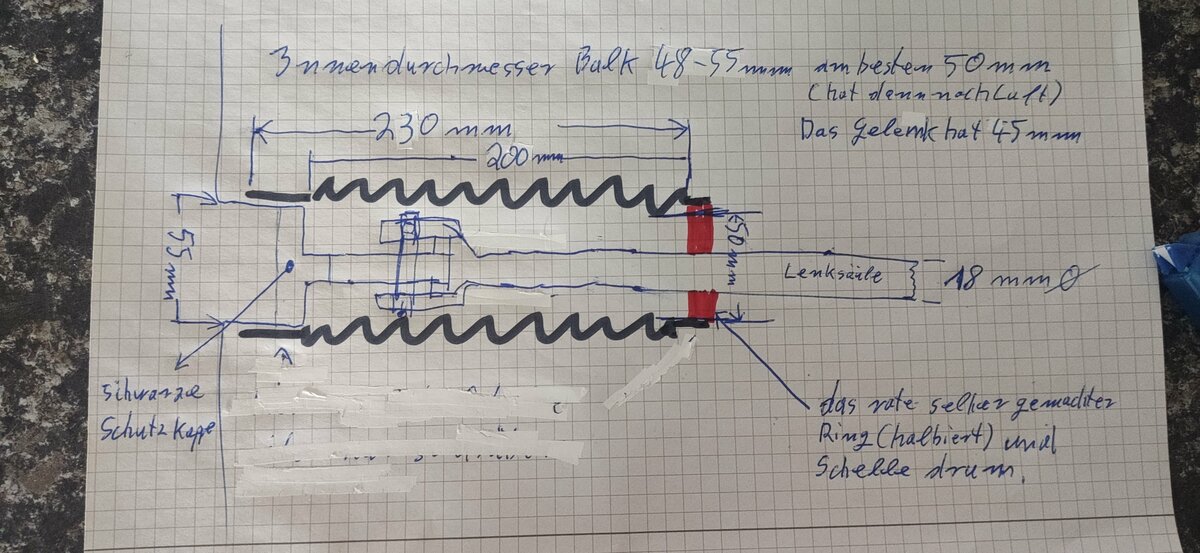 Innendurchmesser Balk 48-55mm am besten 50mm
(hat dann noch Luft)
Das Gelenk hat 45mm
230 mm
200mm
55mm
50mm
Lenksäule
18 mm Ø
schwarze
Schutzkappe
das rote selber gemachter
Ring (halbiert) und
Schelle drum.